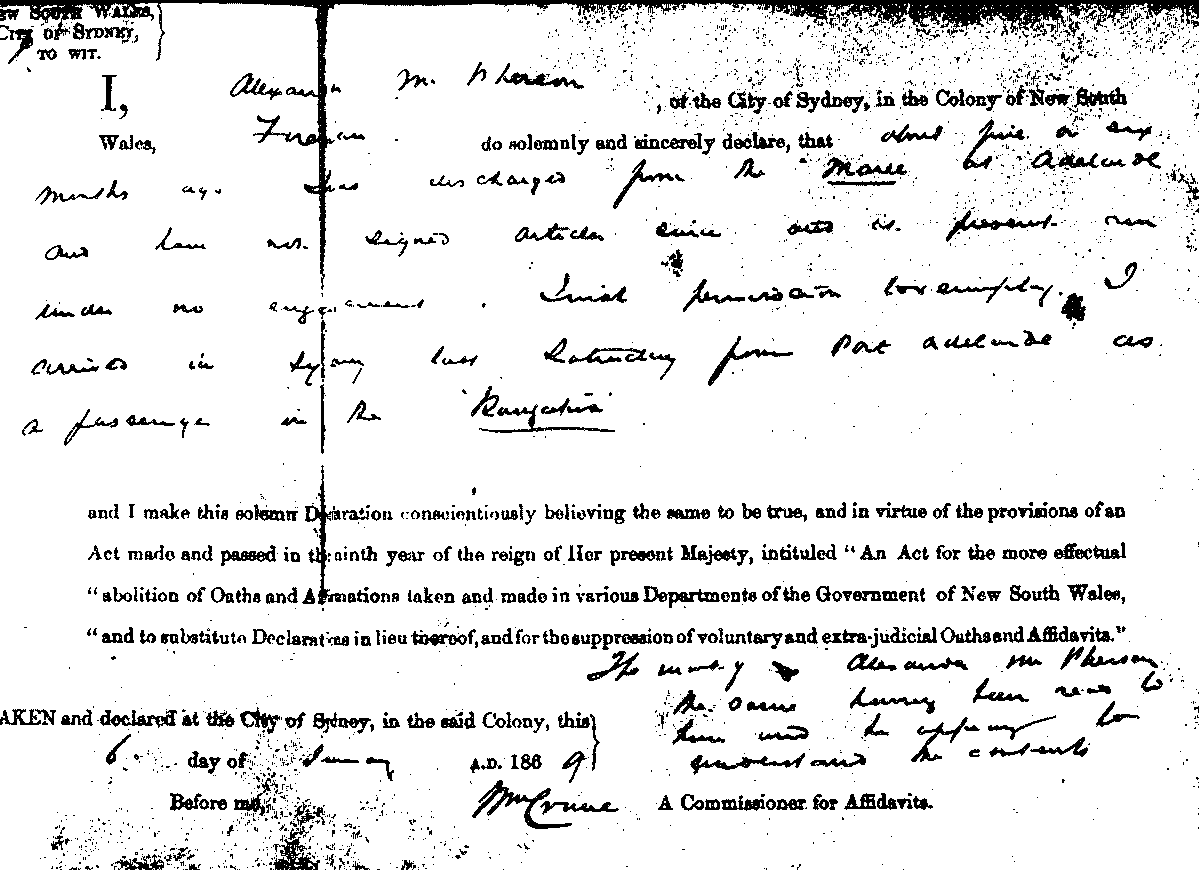 NEW SOUTH WALES,
CITY OF SYDNEY,
TO WIT.
I, Alexander McPherson, of the City of Sydney, in the Colony of New South
Wales, Fireman do solemnly and sincerely declare, that about five or six
months ago I was discharged from the "Maree" at Adelaide
and have not signed articles since and at present am
under no engagement. I wish permission to exempting. I
arrived in Sydney last Saturday from Port Adelaide as
a passenger in the "Rangatira"
and I make this solemn Declaration conscientiously believing the same to be true, and in virtue of the provisions of an
Act made and passed in the ninth year of the reign of Her present Majesty, intituled "An Act for the more effectual
"abolition of Oaths and Affirmations taken and made in various Departments of the Government of New South Wales,
"and to substitute Declarations in lieu thereof, and for the suppression of voluntary and extra-judicial Oaths and Affidavits."
The mark of X Alexander McPherson
the same having been read to
him and he appearing to
understand the contents
TAKEN and declared at the City of Sydney, in the said Colony, this
6 day of January A.D. 1869
Before me, Wm Crane A Commissioner for Affidavits.